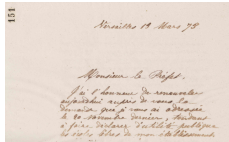 151
Versailles 19 Mars 78
Monsieur le Préfet.
J'ai l'honneur de renouveler
aujourd'hui auprès de vous la
demande que je vous ai adressée
le 20 novembre dernier, tendant
à faire déclarer d'utilité publique
les écoles libres de mon établissement